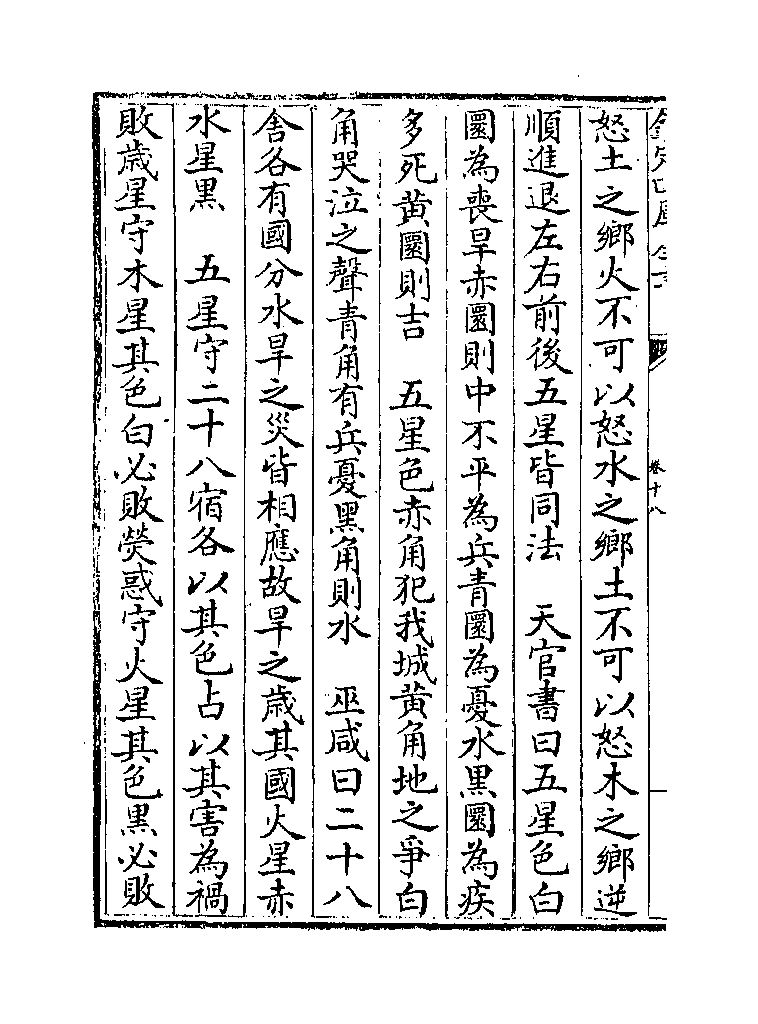 欽定四庫全書
卷十八
怒土之鄉火不可以怒水之鄉土不可以怒木之鄉逆
順進退左右前後五星皆同法　天官書曰五星色白
圜為喪旱赤圜則中不平為兵青圜為憂水黑圜為疾
多死黃圜則吉　五星色赤角犯我城黃角地之爭白
角哭泣之聲青角有兵憂黑角則水　巫咸曰二十八
舍各有國分水旱之災皆相應故旱之歲其國火星赤
水星黑　五星守二十八宿各以其色占以其害為禍
敗歲星守木星其色白必敗熒惑守火星其色黑必敗